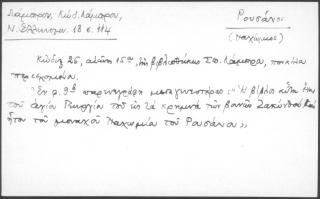 Λάμπρου, Κώδ. Λάμπρου,
Ν. Ἑλληνομν. 18 σ. 114
Ρουσάνου
(Παχώμιος)
Κώδιξ 25, αἰῶνος 15ου, τῆς βιβλιοθήκης Σπ. Λάμπρου, ποικίλου
περιεχομένου.
Ἐν φ. 9β παρεγγραφὴ μεταγενεστέρα: "Ἡ βίβλος αὕτη ἦν
τοῦ ἁγίου Γεωργίου τοῦ εἰς τὰ κρημνὰ τῶν βουνῶν Ζακύνθου
ἦτον τοῦ μοναχοῦ Παχωμίου τοῦ Ρουσάνου"